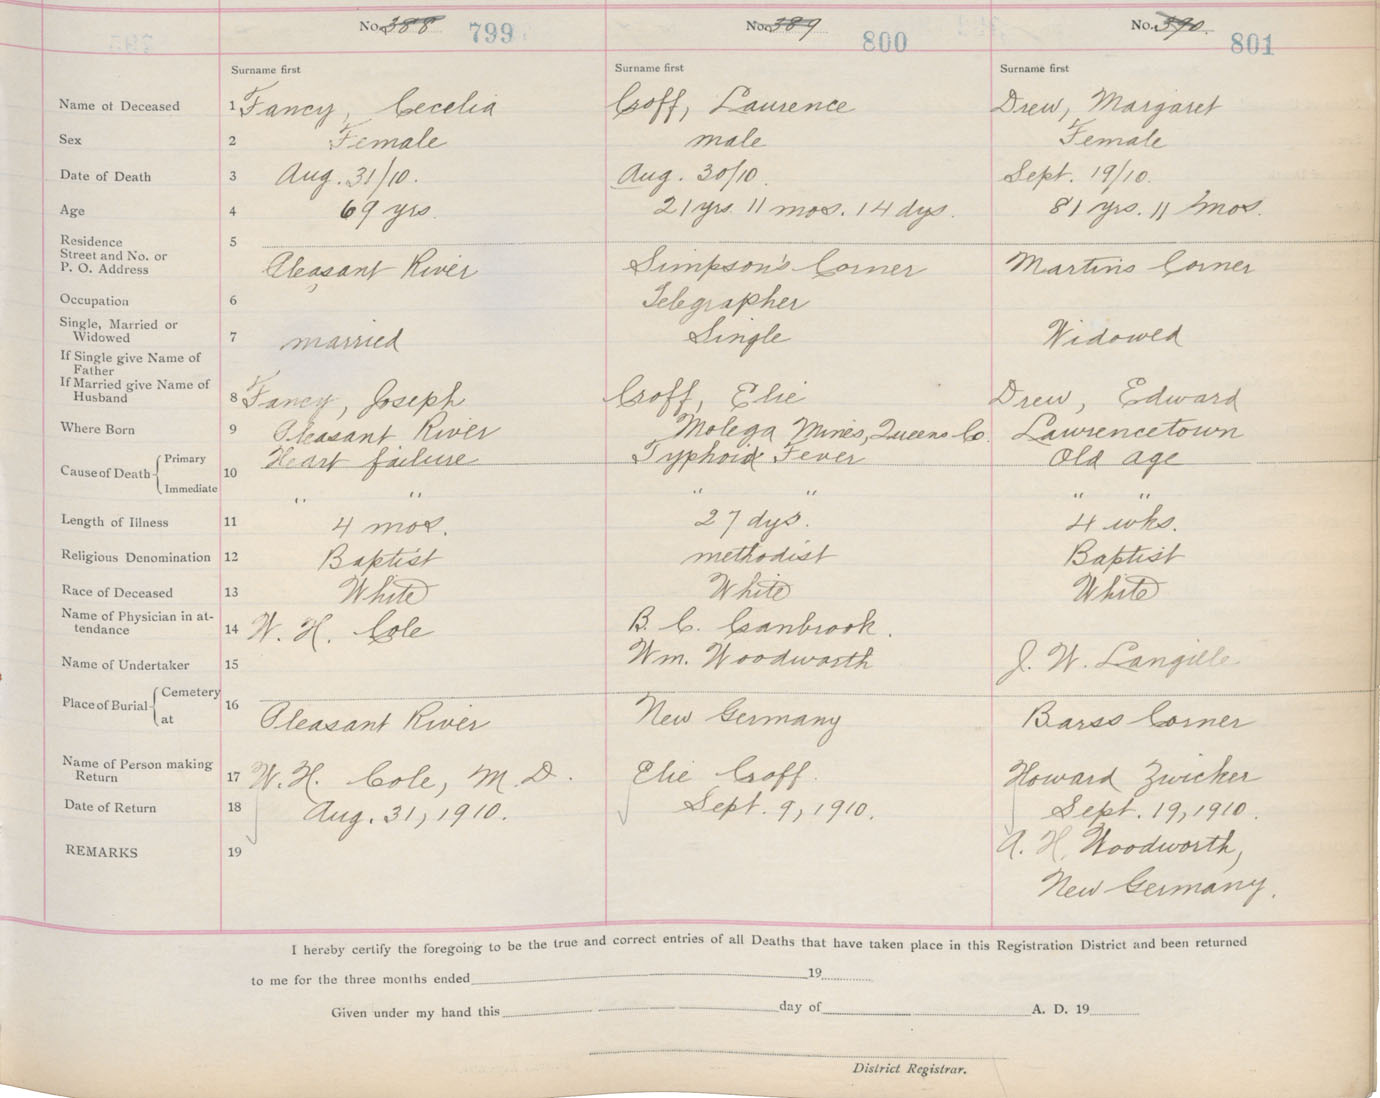 No. 388 799 No. 389 800 No. 390 801
Surname first Surname first Surname first
Name of Deceased 1 Fancy, Cecelia Croff, Laurence Drew, Margaret
Sex 2 Female male Female
Date of Death 3 Aug. 31/10. Aug. 30/10. Sept. 19/10.
Age 4 69 yrs. 21 yrs. 11 mos. 14 dys. 81 yrs. 11 mos.
Residence 5
Street and No. or
P. O. Address Pleasant River Simpson's Corner Martins Corner
Occupation 6 Telegrapher
Single, Married or
Widowed 7 married Single Widowed
If Single give Name of
Father
If Married give Name of
Husband 8 Fancy, Joseph Croff, Elie Drew, Edward
Where Born 9 Pleasant River Molega Mines, Queens Co. Lawrencetown
Cause of Death Primary 10 Heart failure Typhoid Fever Old age
Immediate " " " " " "
Length of Illness 11 4 mos. 27 dys. 4 wks.
Religious Denomination 12 Baptist methodist Baptist
Race of Deceased 13 White White White
Name of Physician in at-
tendance 14 W. H. Cole B. C. Canbrook.
Name of Undertaker 15 Wm. Woodworth J. W. Langille
Place of Burial Cemetery 16
at Pleasant River New Germany Barss Corner
Name of Person making
Return 17 W. H. Cole, M. D. Elie Croff. Howard Zwicker
Date of Return 18 Aug. 31, 1910. Sept. 9, 1910. Sept. 19, 1910.
REMARKS 19 A. H. Woodworth,
New Germany.
I hereby certify the foregoing to be the true and correct entries of all Deaths that have taken place in this Registration District and been returned
to me for the three months ended 19
Given under my hand this day of A. D. 19
District Registrar.